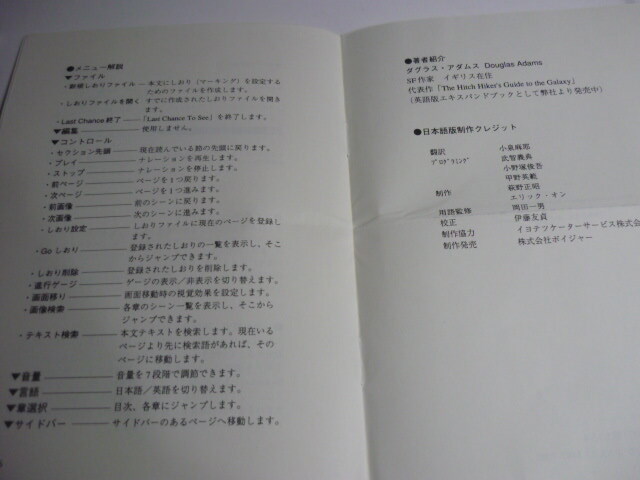 ●メニュー解説
▼ファイル
・新規しおりファイル ― 本文にしおり（マーキング）を設定する
ためのファイルを作成します。
・しおりファイルを開く すでに作成されたしおりファイルを開き
ます。
・Last Chance終了 ― 「Last Chance To See」を終了します。
▼編集 ― 使用しません。
▼コントロール
・セクション先頭 ― 現在読んでいる節の先頭に戻ります。
・プレイ ― ナレーションを再生します。
・ストップ ― ナレーションを停止します。
・前ページ ― ページを1つ戻ります。
・次ページ ― ページを1つ進みます。
・前画像 ― 前のシーンに戻ります。
・次画像 ― 次のシーンに進みます。
・しおり設定 ― しおりファイルに現在のページを登録し
ます。
・Go しおり ― 登録されたしおりの一覧を表示し、そこ
からジャンプできます。
・しおり削除 ― 登録されたしおりを削除します。
・進行ゲージ ― ゲージの表示／非表示を切り替えます。
・画面移り ― 画面移動時の視覚効果を設定します。
・画像検索 ― 各章のシーン一覧を表示し、そこから
ジャンプできます。
・テキスト検索 ― 本文テキストを検索します。現在いる
ページより先に検索語があれば、その
ページに移動します。
▼音量 ― 音量を7段階で調節できます。
▼言語 ― 日本語／英語を切り替えます。
▼章選択 ― 目次、各章にジャンプします。
▼サイドバー ― サイドバーのあるページへ移動します。
●著者紹介
ダグラス・アダムス Douglas Adams
SF作家 イギリス在住
代表作「The Hitch Hiker's Guide to the Galaxy」
（英語版エキスパンドブックとして弊社より発売中）
●日本語版制作クレジット
翻訳 小泉麻耶
プログラミング 武智義典
小野塚俊吾
甲野美範
制作 萩野正昭
エリック・オン
岡田一男
用語監修 伊藤友貞
校正 イヨテツケーターサービス株式会
制作協力 株式会社ボイジャー
制作発売